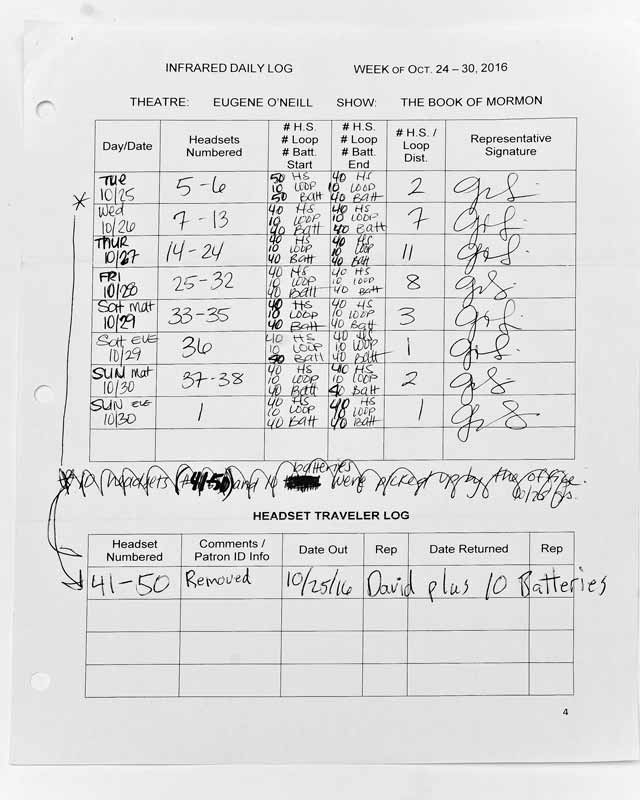 INFRARED DAILY LOG WEEK OF OCT. 24 – 30, 2016
THEATRE: EUGENE O'NEILL SHOW: THE BOOK OF MORMON
Day/Date Headsets Numbered # H.S. # Loop # Batt. Start # H.S. # Loop # Batt. End # H.S. / Loop Dist. Representative Signature
* TUE 10/25 5-6 50 HS 10 LOOP 50 Batt 40 HS 10 LOOP 40 Batt 2
Wed 10/26 7-13 40 HS 10 LOOP 40 Batt 40 HS 10 LOOP 40 Batt 7
THUR 10/27 14-24 40 HS 10 LOOP 40 Batt 40 HS 10 LOOP 40 Batt 11
FRI 10/28 25-32 40 HS 10 LOOP 40 Batt 40 HS 10 LOOP 40 Batt 8
Sat mat 10/29 33-35 40 HS 10 LOOP 40 Batt 40 HS 10 LOOP 40 Batt 3
Sat EVE 10/29 36 40 HS 10 LOOP Batt 40 HS 10 LOOP 40 Batt 1
SUN mat 10/30 37-38 40 HS 10 LOOP 40 Batt 40 HS 10 LOOP 40 Batt 2
SUN EVE 10/30 1 40 HS 10 LOOP 40 Batt HS 10 LOOP 40 Batt 1
batteries
* 10 headsets (#41-50) and 10 were picked up by the office.
10/25
HEADSET TRAVELER LOG
Headset Numbered Comments / Patron ID Info Date Out Rep Date Returned Rep
41-50 Removed 10/25/16 David plus 10 Batteries
4